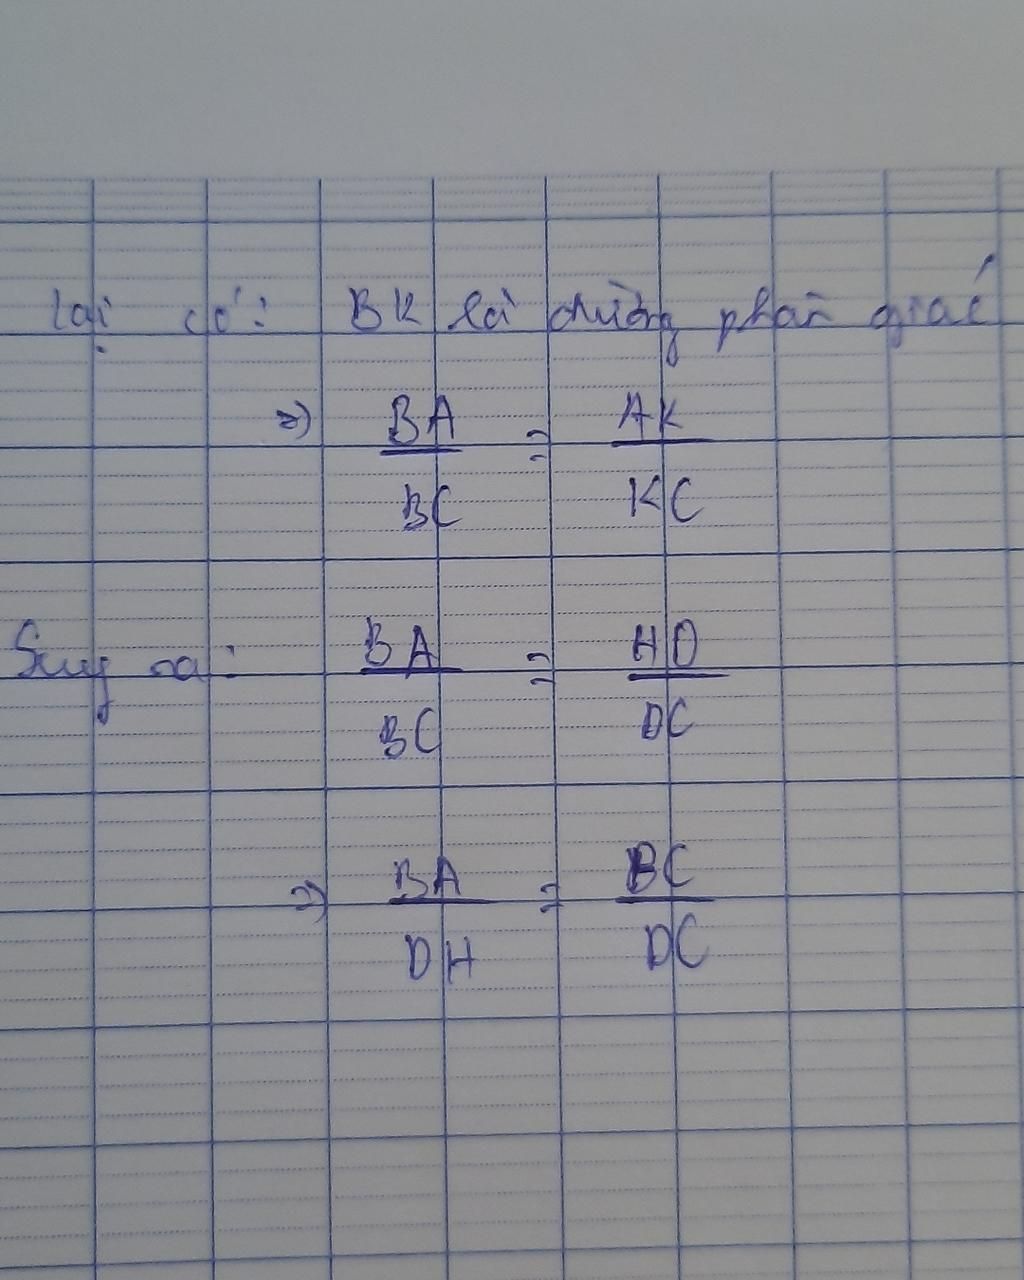 lại có: BK là đường phân giác
=> BA/BC = AK/KC
Suy ra: BA/BC = HD/DC
=> BA/DH = BC/DC